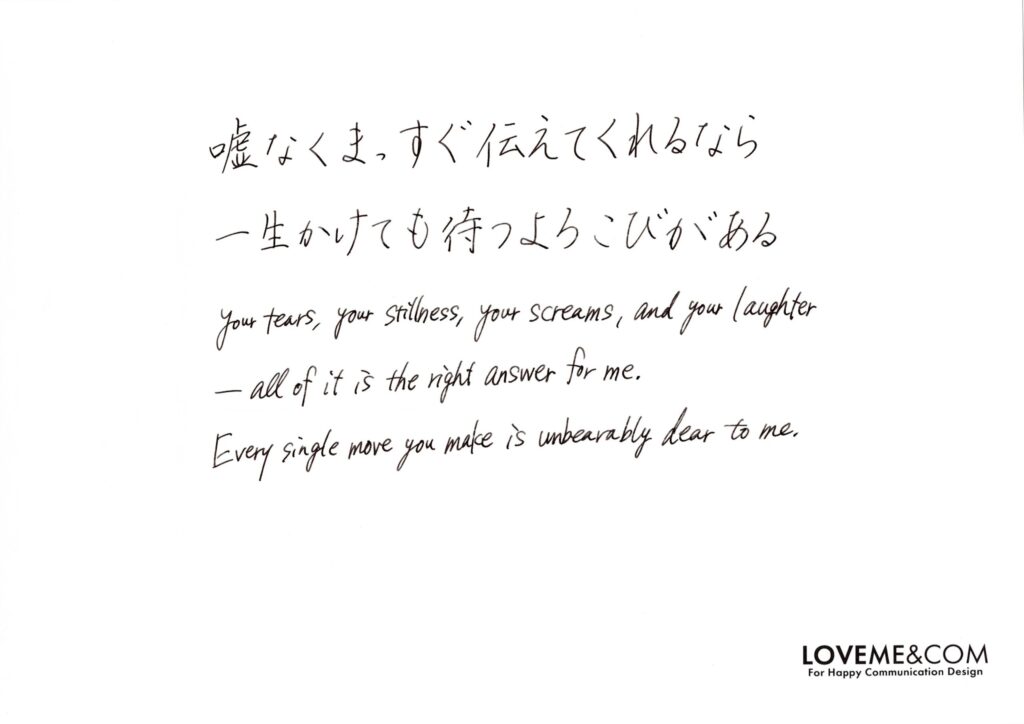 嘘なくまっすぐ伝えてくれるなら
一生かけても待つよろこびがある
your tears, your stillness, your screams, and your laughter
— all of it is the right answer for me.
Every single move you make is unbearably dear to me.
LOVEME&COM
For Happy Communication Design